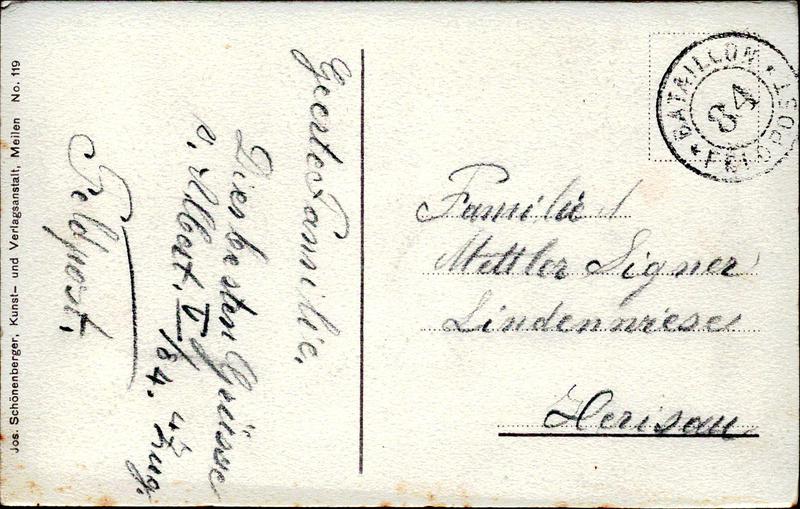 Jos. Schönenberger, Kunst- und Verlagsanstalt, Meilen No. 119
Geerte Familie.
Dies besten Grüsse
v. Albert. V/84. 4. Zug.
Feldpost.
BATAILLON
84
FELDPOST
Familie
Mettler Signer
Lindenwiese
Herisau